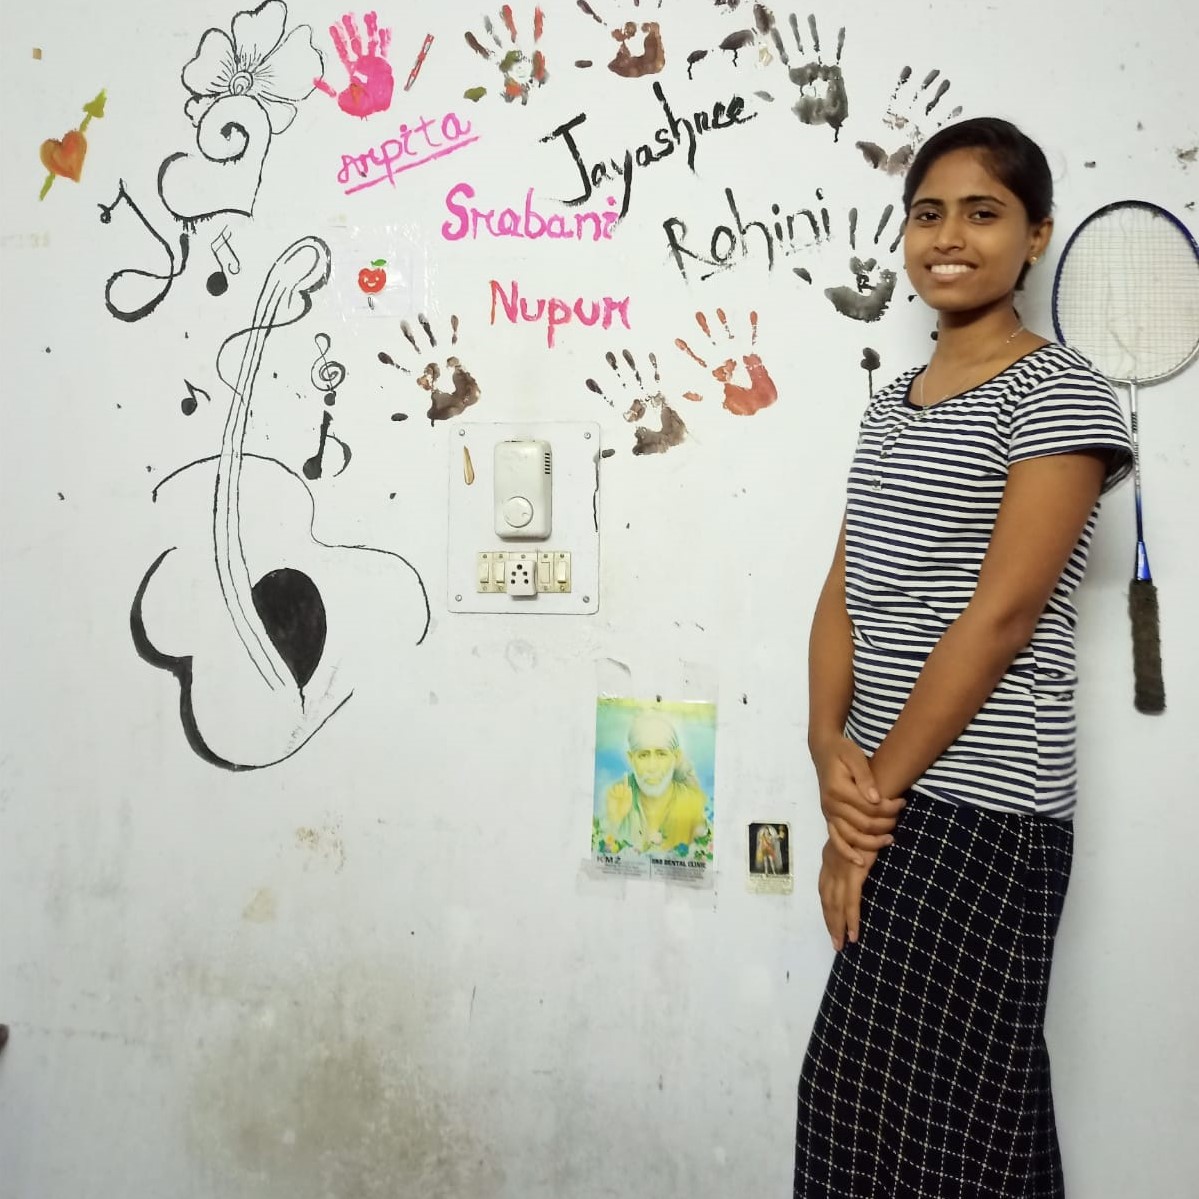 Arpita
Jayashree
Srabani
Rohini
Nupur
R
KMZ
DENTAL CLINIC